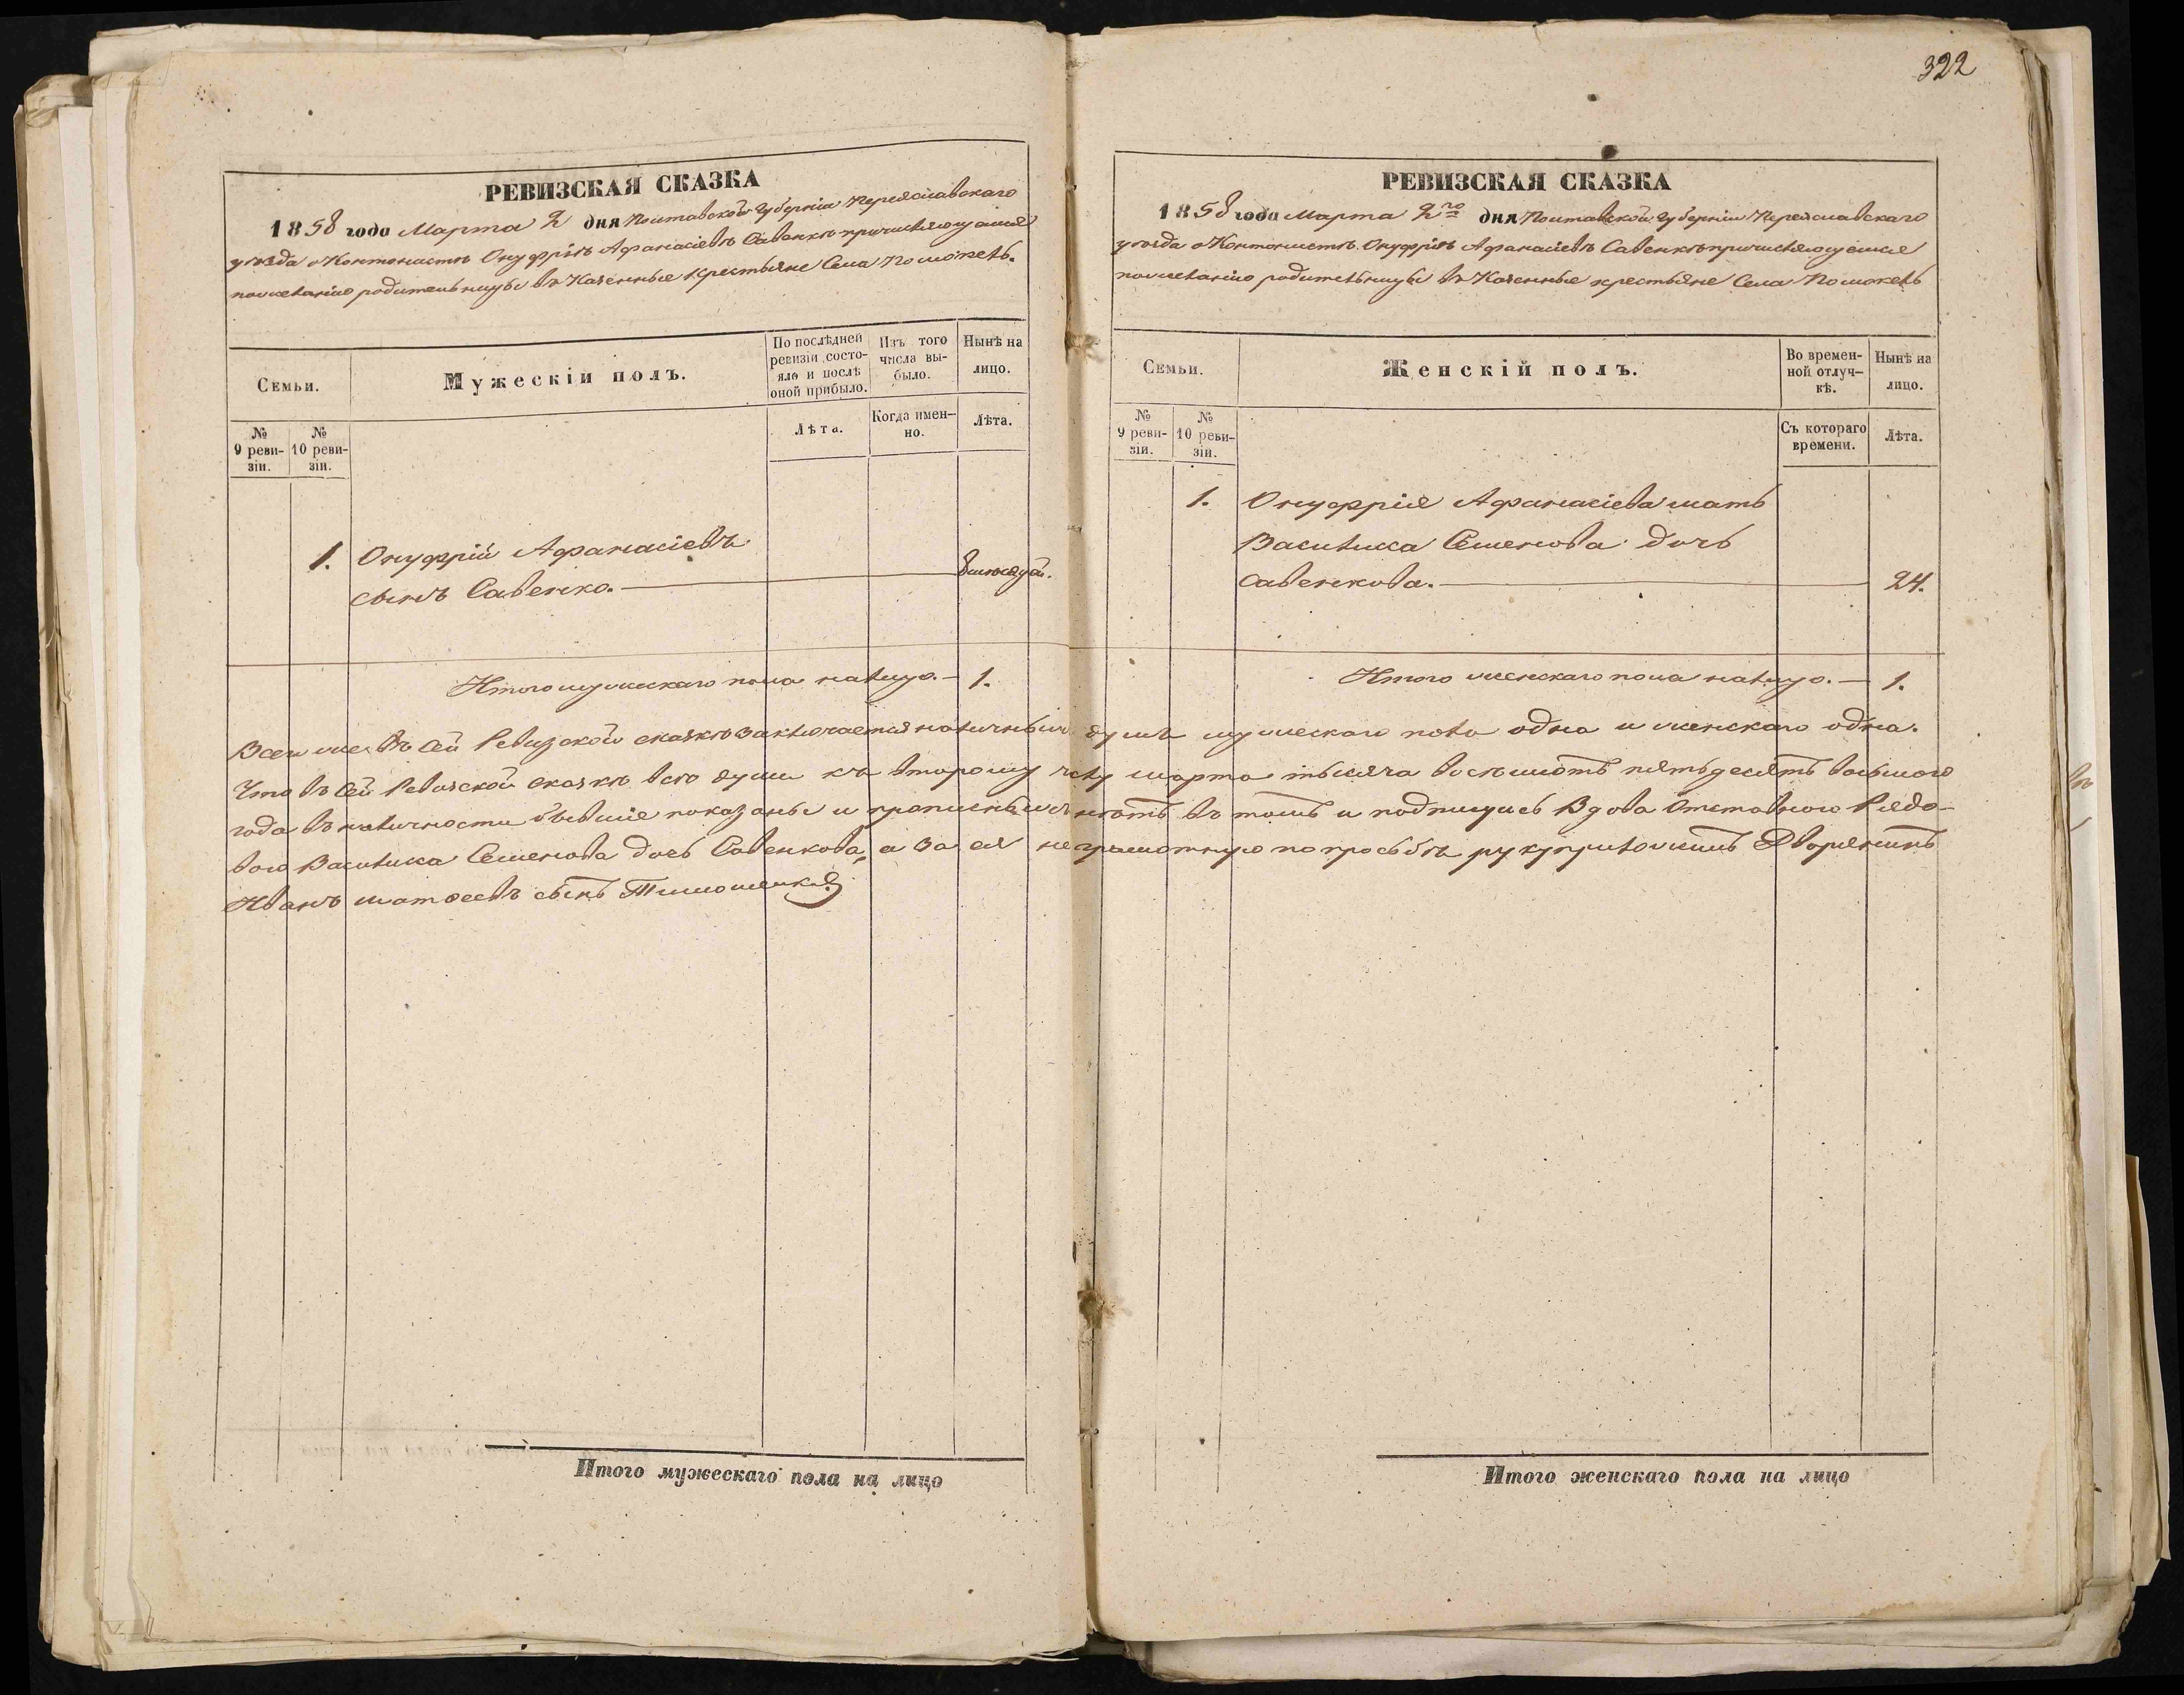 322
РЕВИЗСКАЯ СКАЗКА
1858 года Марта 2 дня Полтавской Губерніи Переяславскаго
уѣзда о Кантонистѣ Онуфріѣ Афанасіевѣ Савенкѣ причисляющемся
по желанію родительницы въ Казенные крестьяне Села Помоклей.
Семьи.
Мужескій полъ.
По послѣдней ревизіи состояло и послѣ оной прибыло.
Изъ того числа выбыло.
Нынѣ на лицо.
№ 9 ревизіи.
№ 10 ревизіи.
Лѣта.
Когда именно.
Лѣта.
1. Онуфрій Афанасіевъ
сынъ Савенко.
Итого мужескаго пола налицо. — 1.
РЕВИЗСКАЯ СКАЗКА
1858 года Марта 2го дня Полтавской Губерніи Переяславскаго
уѣзда о Кантонистѣ Онуфріѣ Афанасіевѣ Савенкѣ причисляющемся
по желанію родительницы въ Казенные крестьяне Села Помоклей
Семьи.
Женскій полъ.
Во временной отлучкѣ.
Нынѣ на лицо.
№ 9 ревизіи.
№ 10 ревизіи.
Съ котораго времени.
Лѣта.
1. Онуфрія Афанасіева мать
Василиса Семенова дочь
Савенкова. — 24.
Итого женскаго пола налицо. — 1.
Всего же въ сей Ревизской сказкѣ заключается наличныхъ душъ мужескаго пола одна и женскаго одна.
Что въ сей Ревизской сказкѣ всѣ души къ второму числу марта тысяча восемьсотъ пятьдесятъ восьмого
года въ наличности бывшіе показаны и прописныхъ нѣтъ въ томъ и подпишусь Вдова Отставного Рядо-
вого Василиса Семенова дочь Савенкова, а за ея неграмотную по просьбѣ руку приложилъ Дворянинъ
Иванъ Матвеевъ сынъ Тимошенко
Итого мужескаго пола на лицо
Итого женскаго пола на лицо